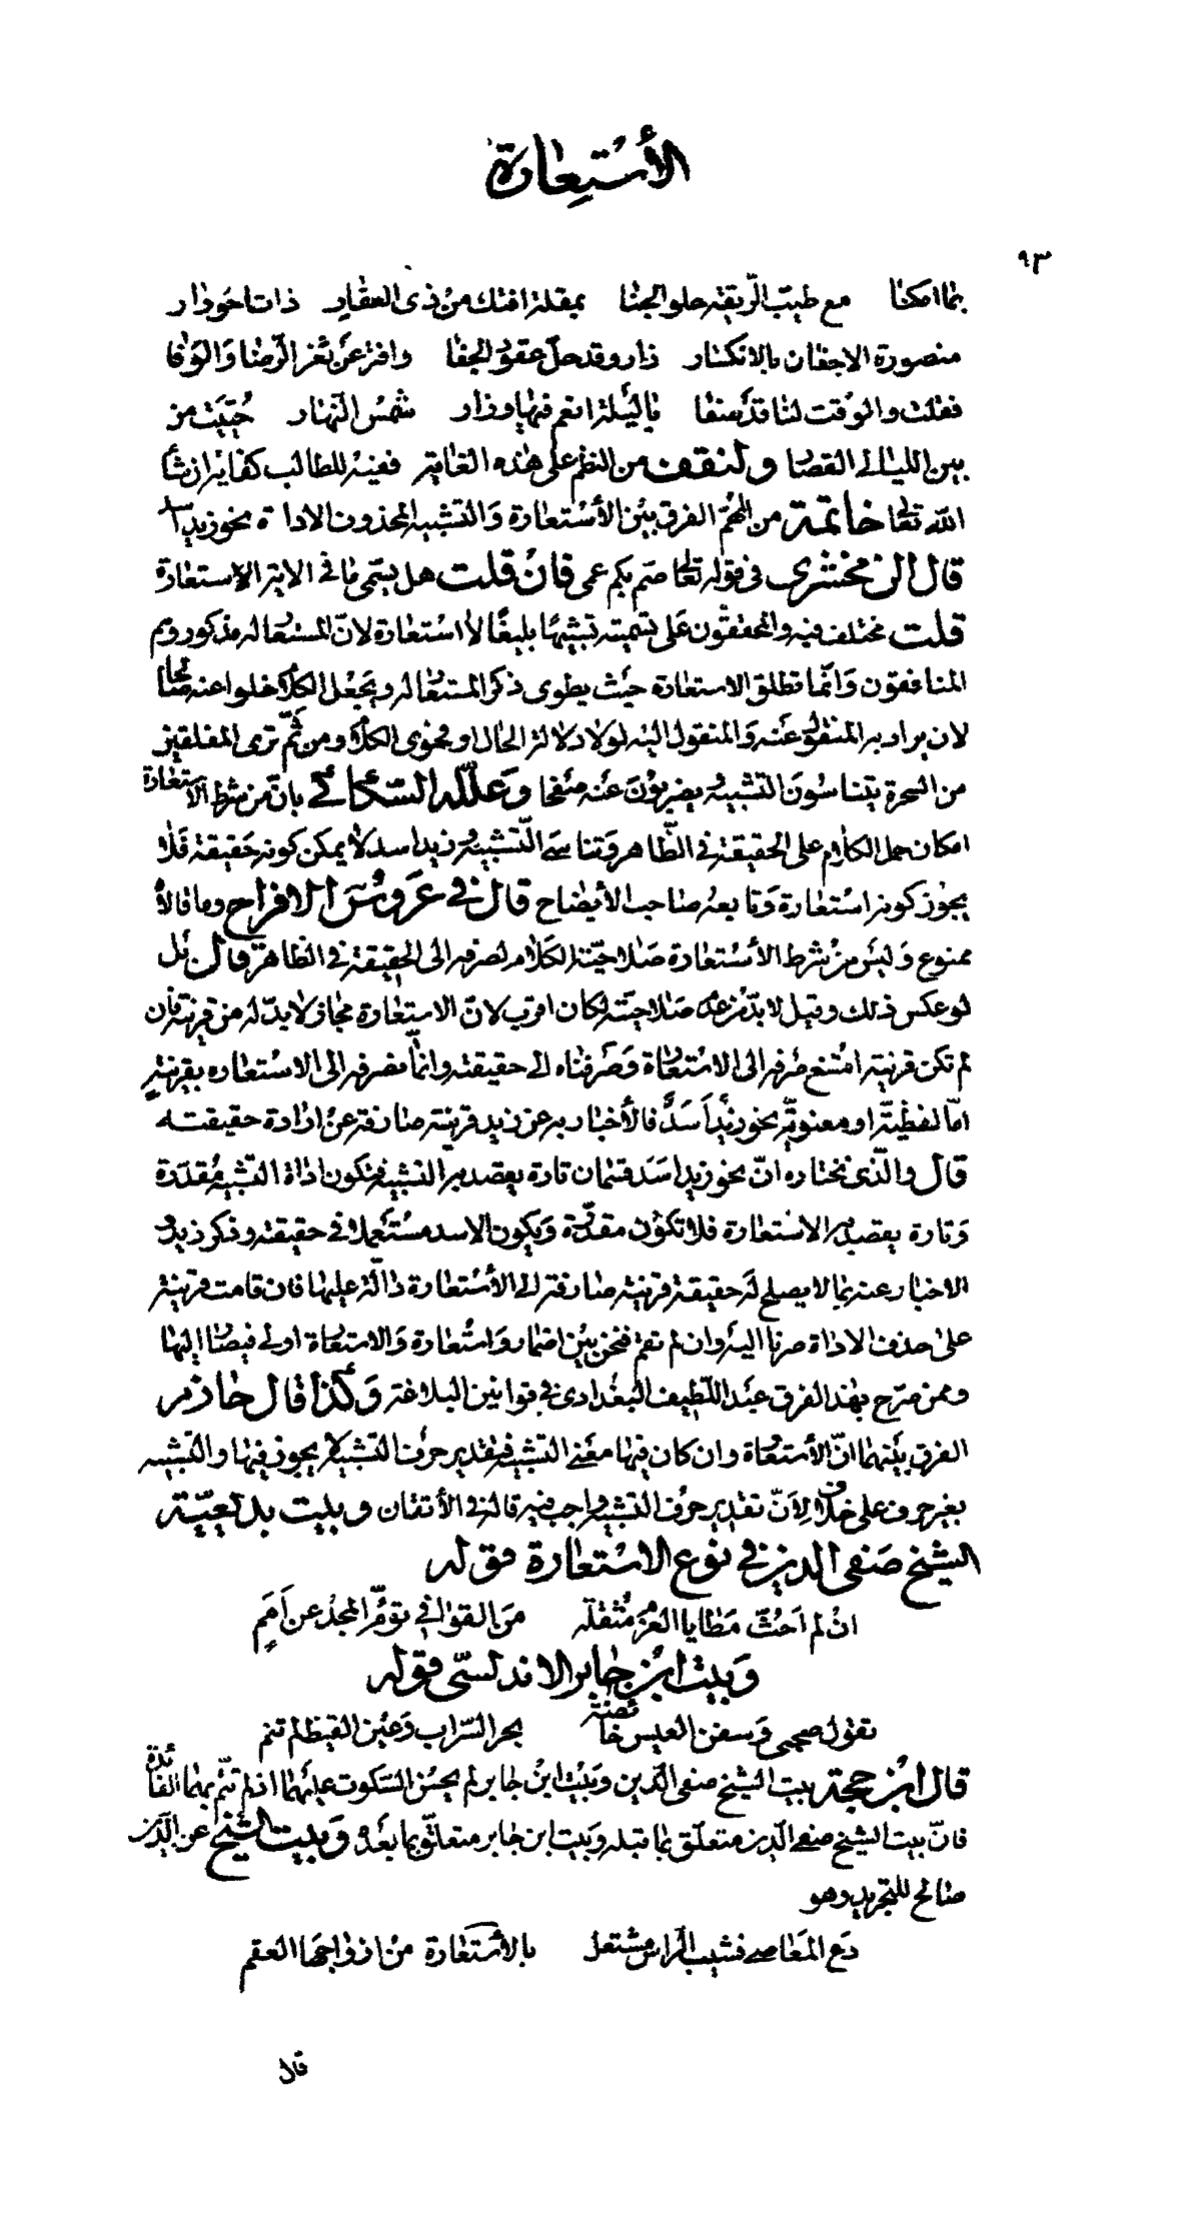 الأستعارة
٩٣
بما امكنا مع طيب الريقة حلو الجنا بمقلة افتك من ذى الفقار ذات احورار
منصورة الاجفان بالانكسار زار وقد حل عقود الجفا وافتر عن ثغر الرضا والوفا
فقلت والوقت لنا قد صفا يا ليلة انعم فيها وزار شمس النهار حييت من
بين الليالى القصار ولنقف من النظم على هذه الغاية ففيه للطالب كفاية ان شأ
الله تعالى خاتمة من المهم الفرق بين الأستعارة والتشبيه المحذوف الاداة نحو زيد اسد
قال الزمخشرى فى قوله تعالى صم بكم عمى فان قلت هل يسمى ما فى الاية الاستعارة
قلت مختلف فيه والمحققون على تسميته تشبيها بليغا لا استعارة لان المستعار له مذكور وهم
المنافقون وانما تطلق الاستعارة حيث يطوى ذكر المستعار له ويجعل الكلام خلوا عنه صالحا
لان يراد به المنقول عنه والمنقول اليه لولا دلالة الحال او فحوى الكلام ومن ثم ترى المفلقين
من السحرة يتناسون التشبيه ويضربون عنه صفحا وعلله السكاكى بان من شرط الاستعارة
امكان حمل الكلام على الحقيقة فى الظاهر وتناسى التشبيه وزيد اسد لا يمكن كونه حقيقة فلا
يجوز كونه استعارة وتابعه صاحب الأيضاح قال فى عروس الافراح وما قالاه
ممنوع وليس من شرط الأستعارة صلاحية الكلام لصرفه الى الحقيقة فى الظاهر قال بل
لو عكس ذلك وقيل لا بد من عدم صلاحيته لكان اقرب لان الاستعارة مجاز لا بد له من قرينة فان
لم تكن قرينة امتنع صرفه الى الاستعارة وصرفناه الى حقيقته وانما نصرفه الى الاستعاره بقرينة
اما لفظية او معنوية نحو زيد اسد فالأخبار به عن زيد قرينة صارفة عن ارادة حقيقته
قال والذى نختاره ان نحو زيد اسد قسمان تارة يقصد به التشبيه فتكون اداة التشبيه مقدرة
وتارة يقصد به الاستعارة فلا تكون مقدرة ويكون الاسد مستعملا فى حقيقته وذكر زيد و
الاخبار عنه بما لا يصلح له حقيقة قرينة صارفة الى الأستعارة دالة عليها فان قامت قرينة
على حذف الاداة صرنا اليه وان لم تقم فنحن بين اضمار واستعارة والاستعارة اولى فيصار اليها
وممن صرح بهذا الفرق عبد اللطيف البغدادى فى قوانين البلاغة وكذا قال حازم
الفرق بينهما ان الأستعارة وان كان فيها معنى التشبيه فتقدير حرف التشبيه لا يجوز فيها والتشبيه
بغير حرف على خلاف لأن تقدير حرف التشبيه واجب فيه قاله فى الأتقان وبيت بديعية
الشيخ صفى الدين فى نوع الاستعارة قوله
ان لم احث مطايا العزم مثقلة من القوافى تؤم المجد عن امم
وبيت ابن جابر الاندلسى قوله
تقول صحبى وسفن العيس خائضة بحر السراب وعين القيظ لم تنم
قال ابن حجة بيت الشيخ صفى الدين وبيت ابن جابر لم يحسن السكوت عليهما اذ لم تتم بهما الفائدة
فان بيت الشيخ صفى الدين متعلق بما قبله وبيت ابن جابر متعلق بما بعده وبيت الشيخ عز الدين
صالح للتجريد وهو
دع المعاصى فشيب الرأس مشتعل بالأستعارة من ازواجها العقم
قال